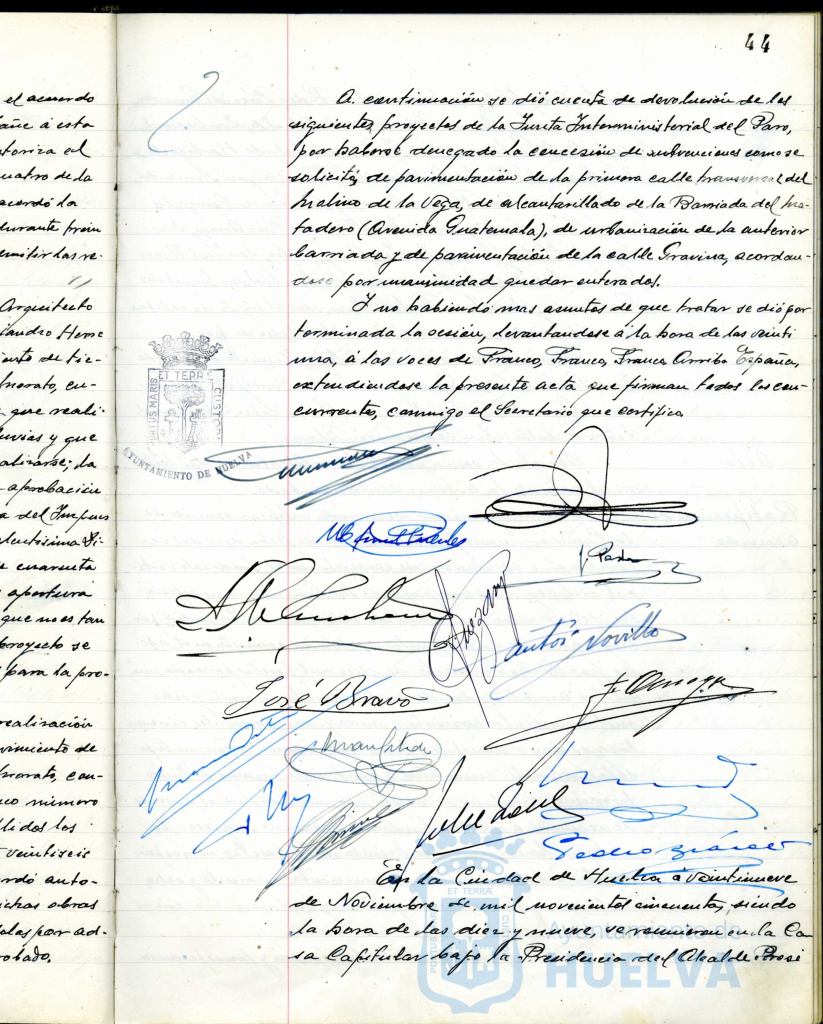 44
el acuerdo
añe á esta
toriza al
uatro de la
acordó la
durante trein
emitir las re-
Arquitecto
iandro Herre
iento de tie-
horato, en-
que reali-
luvias y que
alizarse; la
aprobación
a del Impues
lentísima Di-
e cuarenta
apertura
que no es tan
proyecto se
para la pro-
realización
vimiento de
horato, con-
co número
llidos los
veintiseis
ordó auto-
ichas obras
olas por ad-
robado.
A continuación se dió cuenta de devolución de los
siguientes proyectos de la Junta Interministerial del Paro,
por haberse denegado la concesión de subvenciones como se
solicitó, de pavimentación de la primera calle transversal del
Molino de la Vega, de alcantarillado de la Barriada del Ma-
tadero (Avenida Guatemala), de urbanización de la anterior
barriada y de pavimentación de la calle Gravina, acordan-
dose por unanimidad quedar enterados.
Y no habiendo mas asuntos de que tratar se dió por
terminada la sesión, levantandose á la hora de las veinti
una, á las voces de Franco, Franco, Franco Arriba España,
extendiendose la presente acta que firman todos los con-
currentes, conmigo el Secretario que certifico
ET TERRÆ
PORTUS MARIS
CUSTODIA
AYUNTAMIENTO DE HUELVA
Antº Novillo
José Bravo
En la Ciudad de Huelva á veintinueve
de Noviembre de mil novecientos cincuenta, siendo
la hora de las diez y nueve, se reunieron en la Ca
sa Capitular bajo la Presidencia del Alcalde-Presi
Ayuntamiento de
HUELVA